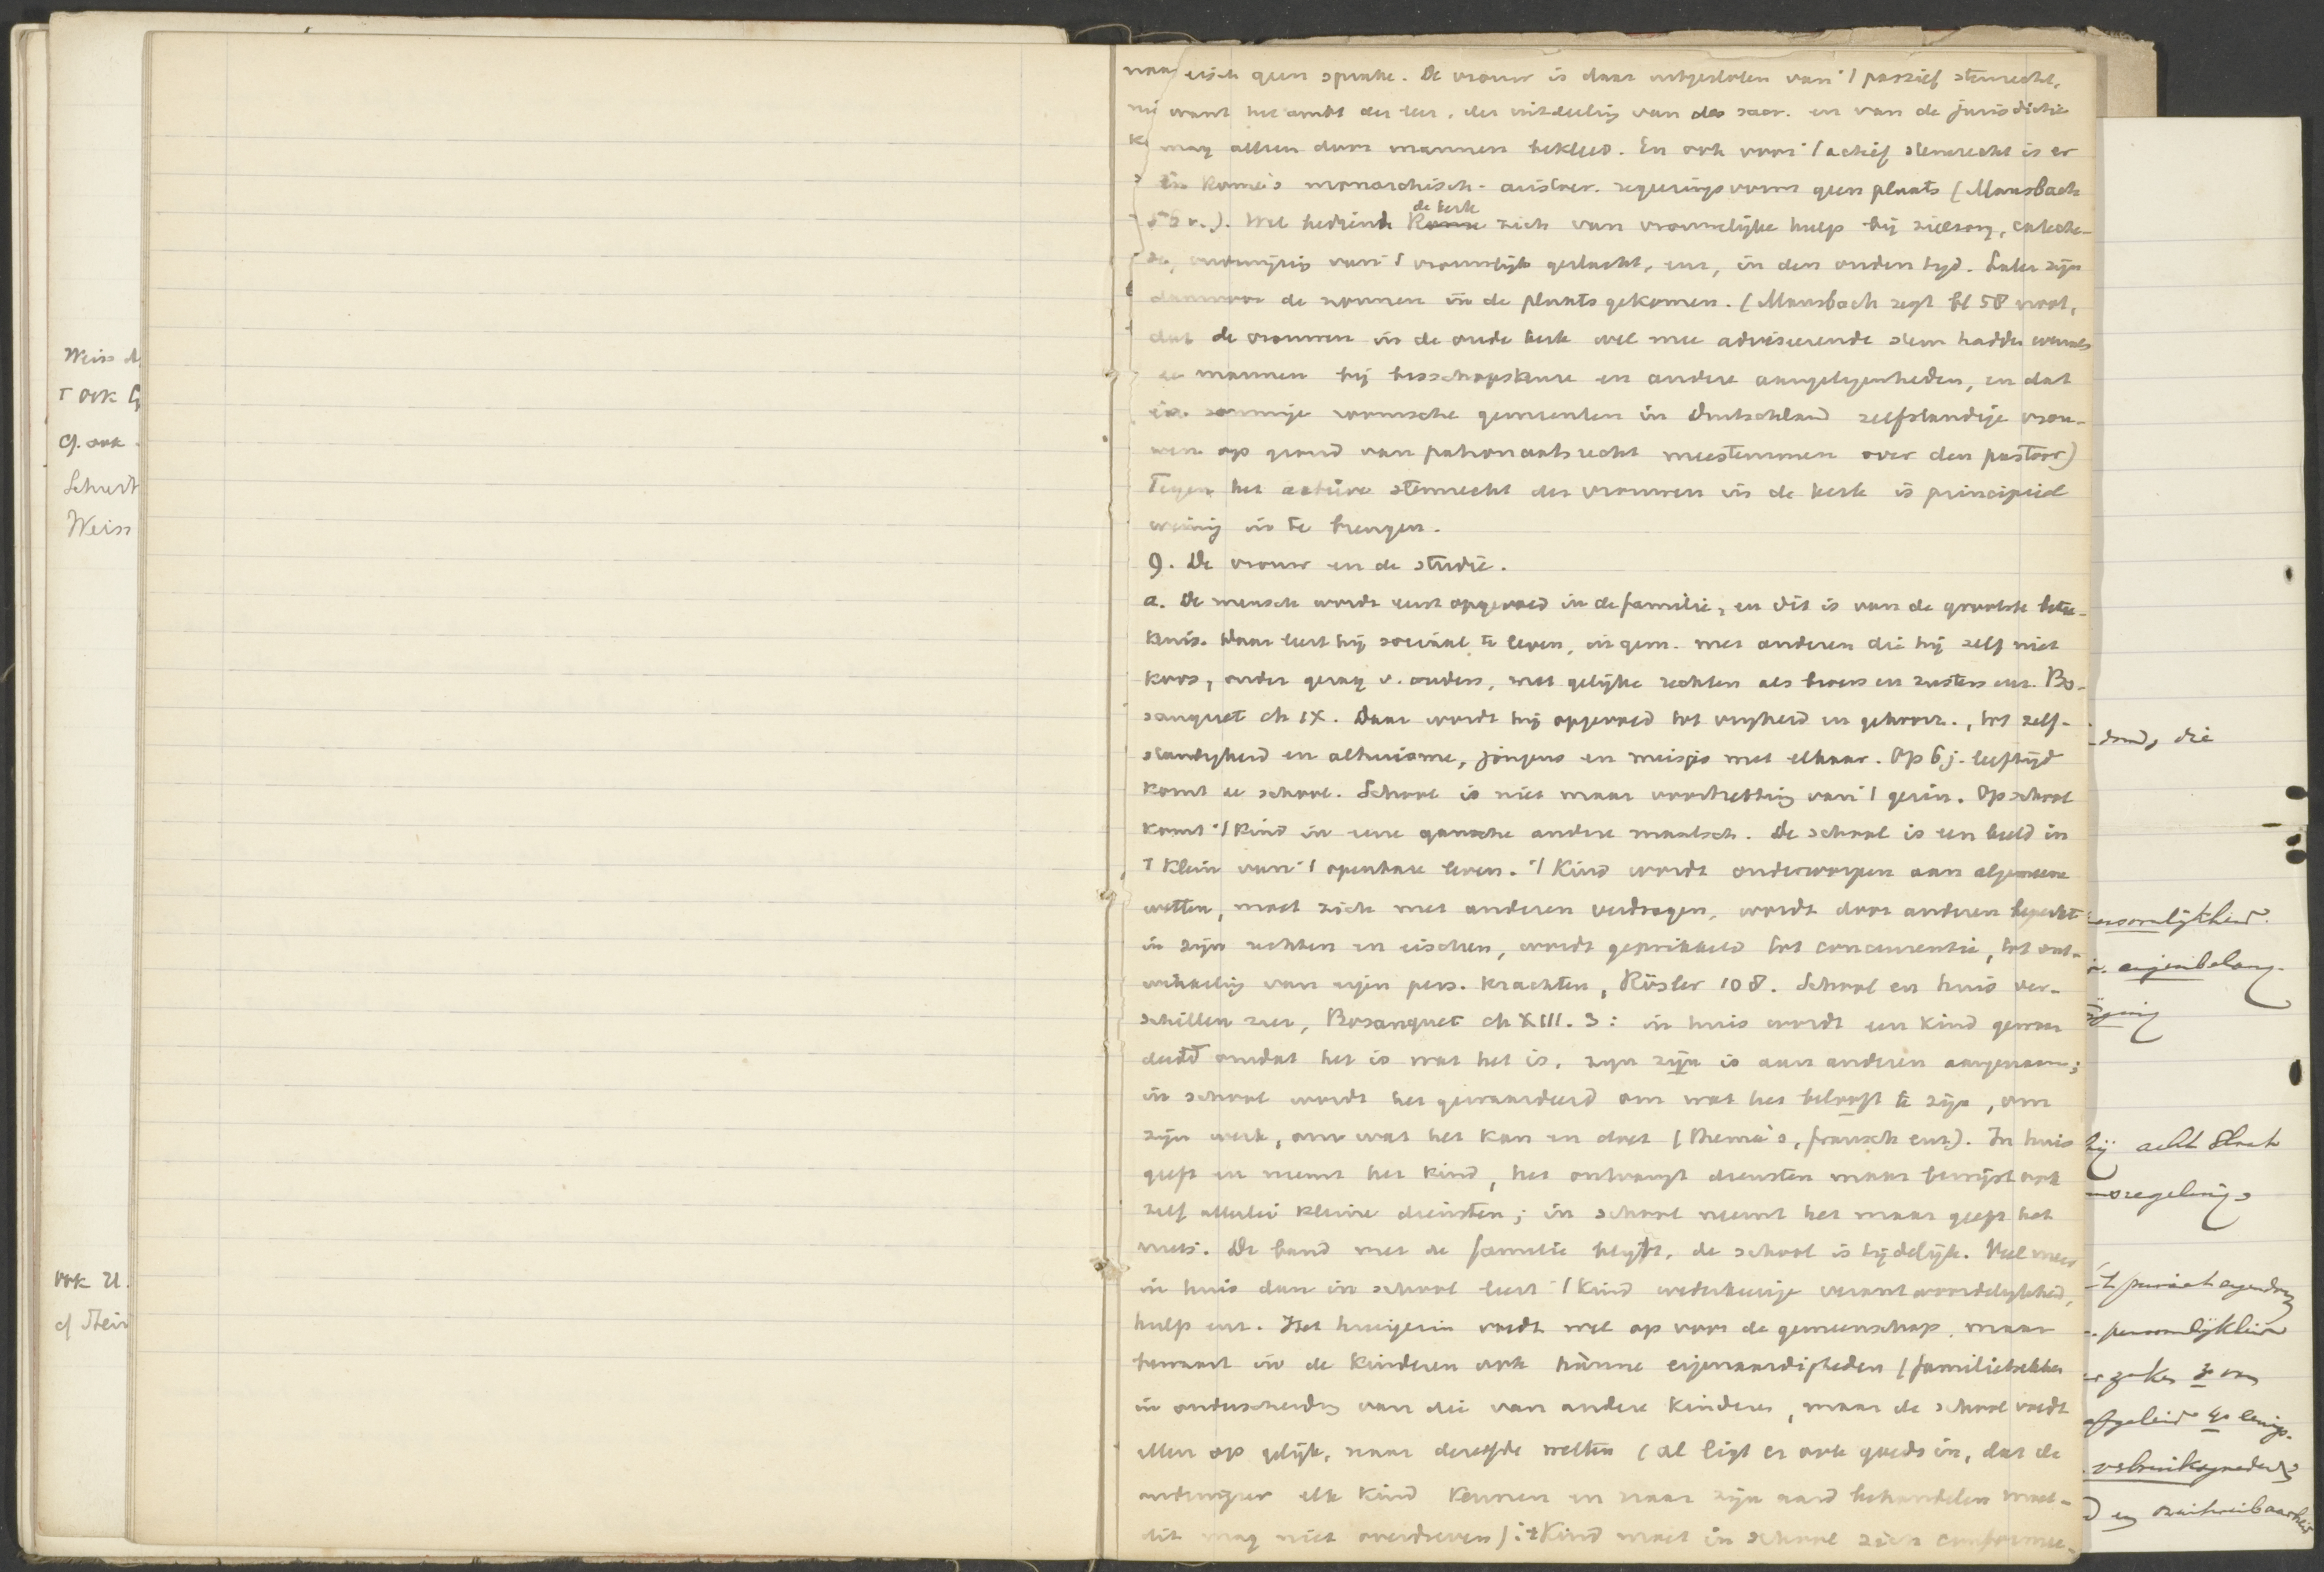 Weiss
T ook
cf. ook
Schreit
Weiss
ook 21.
cf Stein
eisch geen sprake. De vrouw is daar uitgesloten van 't passief stemrecht,
want het ambt der leer, der uitdeeling van des sacr. en van de jurisdictie
mag alleen door mannen bekleed. En ook voor 't actief stemrecht is er
in Rome's monarchisch-aristocr. regeeringsvorm geen plaats (Mausbach
56 v.). Wel bediende de kerk zich van vrouwelijke hulp bij zielzorg, cateche-
se, onderwijzing van 't vrouwelijk geslacht, enz, in den ouden tijd. Later zijn
daarvoor de nonnen in de plaats gekomen. (Mausbach zegt bl 58 noot,
dat de vrouwen in de oude kerk wel mee adviseerende stem hadden evenals
de mannen bij bisschopskeuze en andere aangelegenheden, en dat
in sommige roomsche gemeenten in Duitschland zelfstandige vrou-
wen op grond van patronaatsrecht meestemmen over den pastoor)
Tegen het actieve stemrecht der vrouwen in de kerk is principieel
weinig in te brengen.
9. De vrouw en de studie.
a. De mensch wordt eerst opgevoed in de familie, en dit is van de grootste betee-
kenis. Daar leert hij sociaal te leven, in gem. met anderen die hij zelf niet
koos, onder gezag v. ouders, met gelijke rechten als broers en zusters enz. Bo-
sanquet ch IX. Daar wordt hij opgevoed tot vrijheid en gehoorz., tot zelf-
standigheid en altruisme, jongens en meisjes met elkaar. Op 6 j. leeftijd
komt de school. School is niet maar voortzetting van 't gezin. Op school
komt 't kind in eene gansche andere maatsch. De school is een beeld in
't klein van 't openbare leven. 't Kind wordt onderworpen aan algemeene
wetten, moet zich met anderen verdragen, wordt door anderen beperkt
in zijn rechten en eischen, wordt geprikkeld tot concurrentie, tot ont-
wikkeling van eigen pers. krachten, Rösler 108. School en huis ver-
schillen zeer, Bosanquet ch XIII. 3: in huis wordt een kind gewaar
deerd omdat het is wat het is, zijn zijn is aan anderen aangenaam;
in school wordt het gewaardeerd om wat het belooft te zijn, om
zijn werk, om wat het kan en doet (thema's, fransch enz). In huis
geeft en neemt het kind, het ontvangt diensten maar bewijst ook
zelf allerlei kleine diensten; in school neemt het maar geeft het
niets. De band met de familie blijft, de school is tijdelijk. Veel meer
in huis dan in school leert 't kind wederkeerige verantwoordelijkheid,
hulp enz. Het huisgezin voedt wel op voor de gemeenschap, maar
bewaart in de kinderen ook hunne eigenaardigheden (familietrekken
in onderscheiding van die van andere kinderen, maar de school voedt
allen op gelijk, naar dezelfde wetten (al ligt er ook goeds in, dat de
onderwijzer elk kind kennen en naar zijn aard behandelen moet-
dit mag niet overdreven) : 't Kind moet in school zich conformee-
die
persoonlijkheid.
eigenbelang.
hij acht
regeling
privaat eigendom
persoonlijkheid
zaken
afgeleid
verbruiksgoederen
en